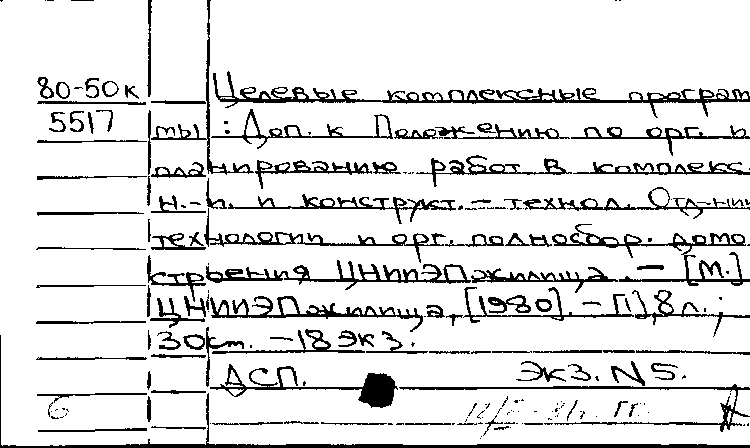 80-50к Целевые комплексные програм
5517 мы : Доп. к Положению по орг. и
планированию работ в комплекс.
н.-и. и конструкт.- технол. Отд-нии
технологии и орг. полносбор. домо
строения ЦНИИЭПжилища. - [М.]
ЦНИИЭПжилища, [1980]. - [1], 8 л.;
30 см. - 18 экз.
ДСП. Экз. N 5.
6